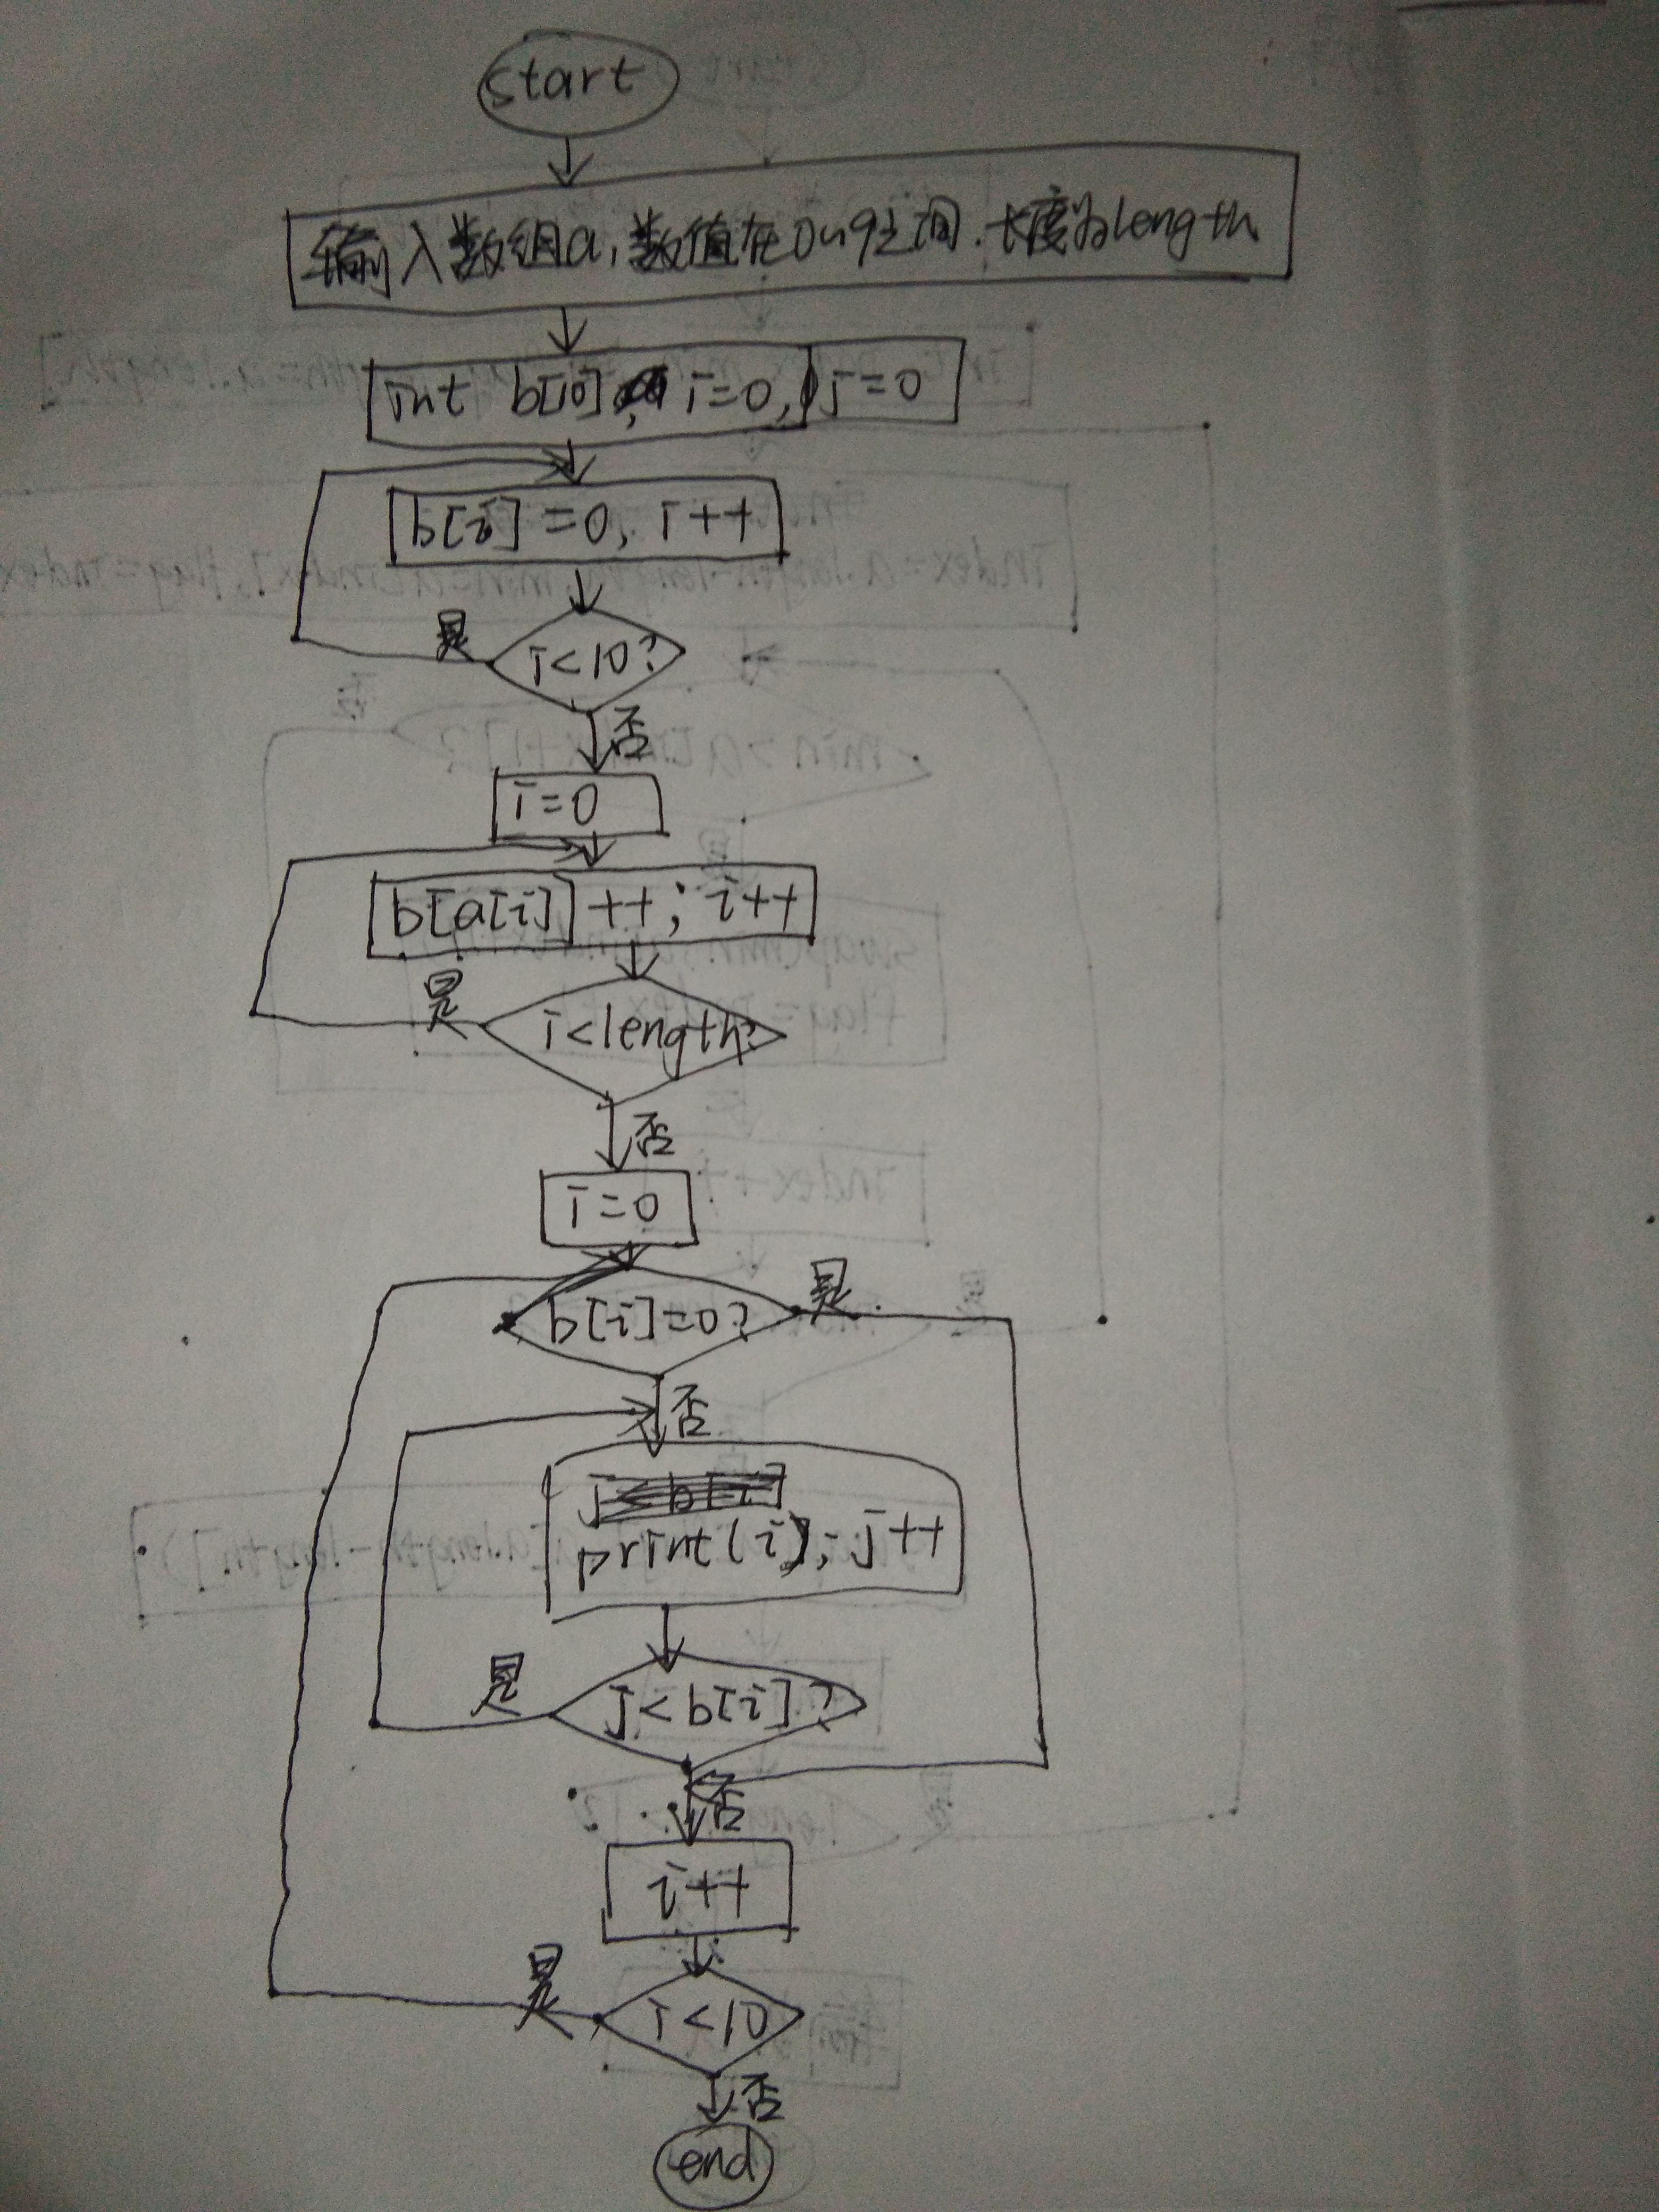 start
输入数组a,数值在0~9之间.长度为length
int b[10], i=0, j=0
b[i]=0, i++
是
i<10?
否
i=0
b[a[i]]++; i++
是
i<length?
否
i=0
b[i]=0?
是
否
j<b[i]
print(i); j++
是
j<b[i]?
否
i++
是
i<10
否
end